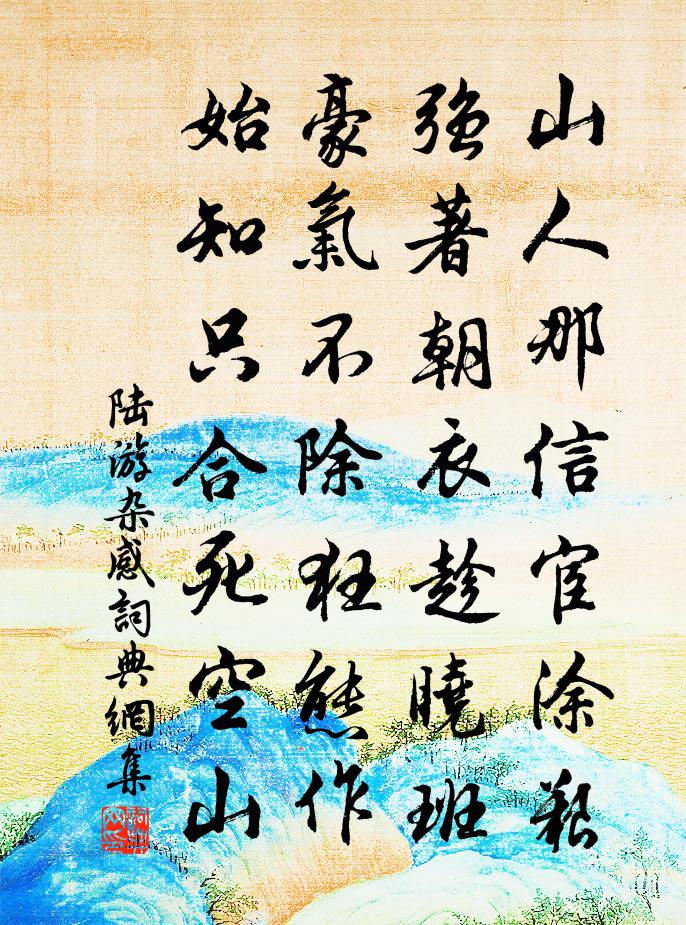 山人那信宦涂艰
强著朝衣趁曉班
豪氣不除狂態作
始知只合死空山
陆游杂感詞典網集